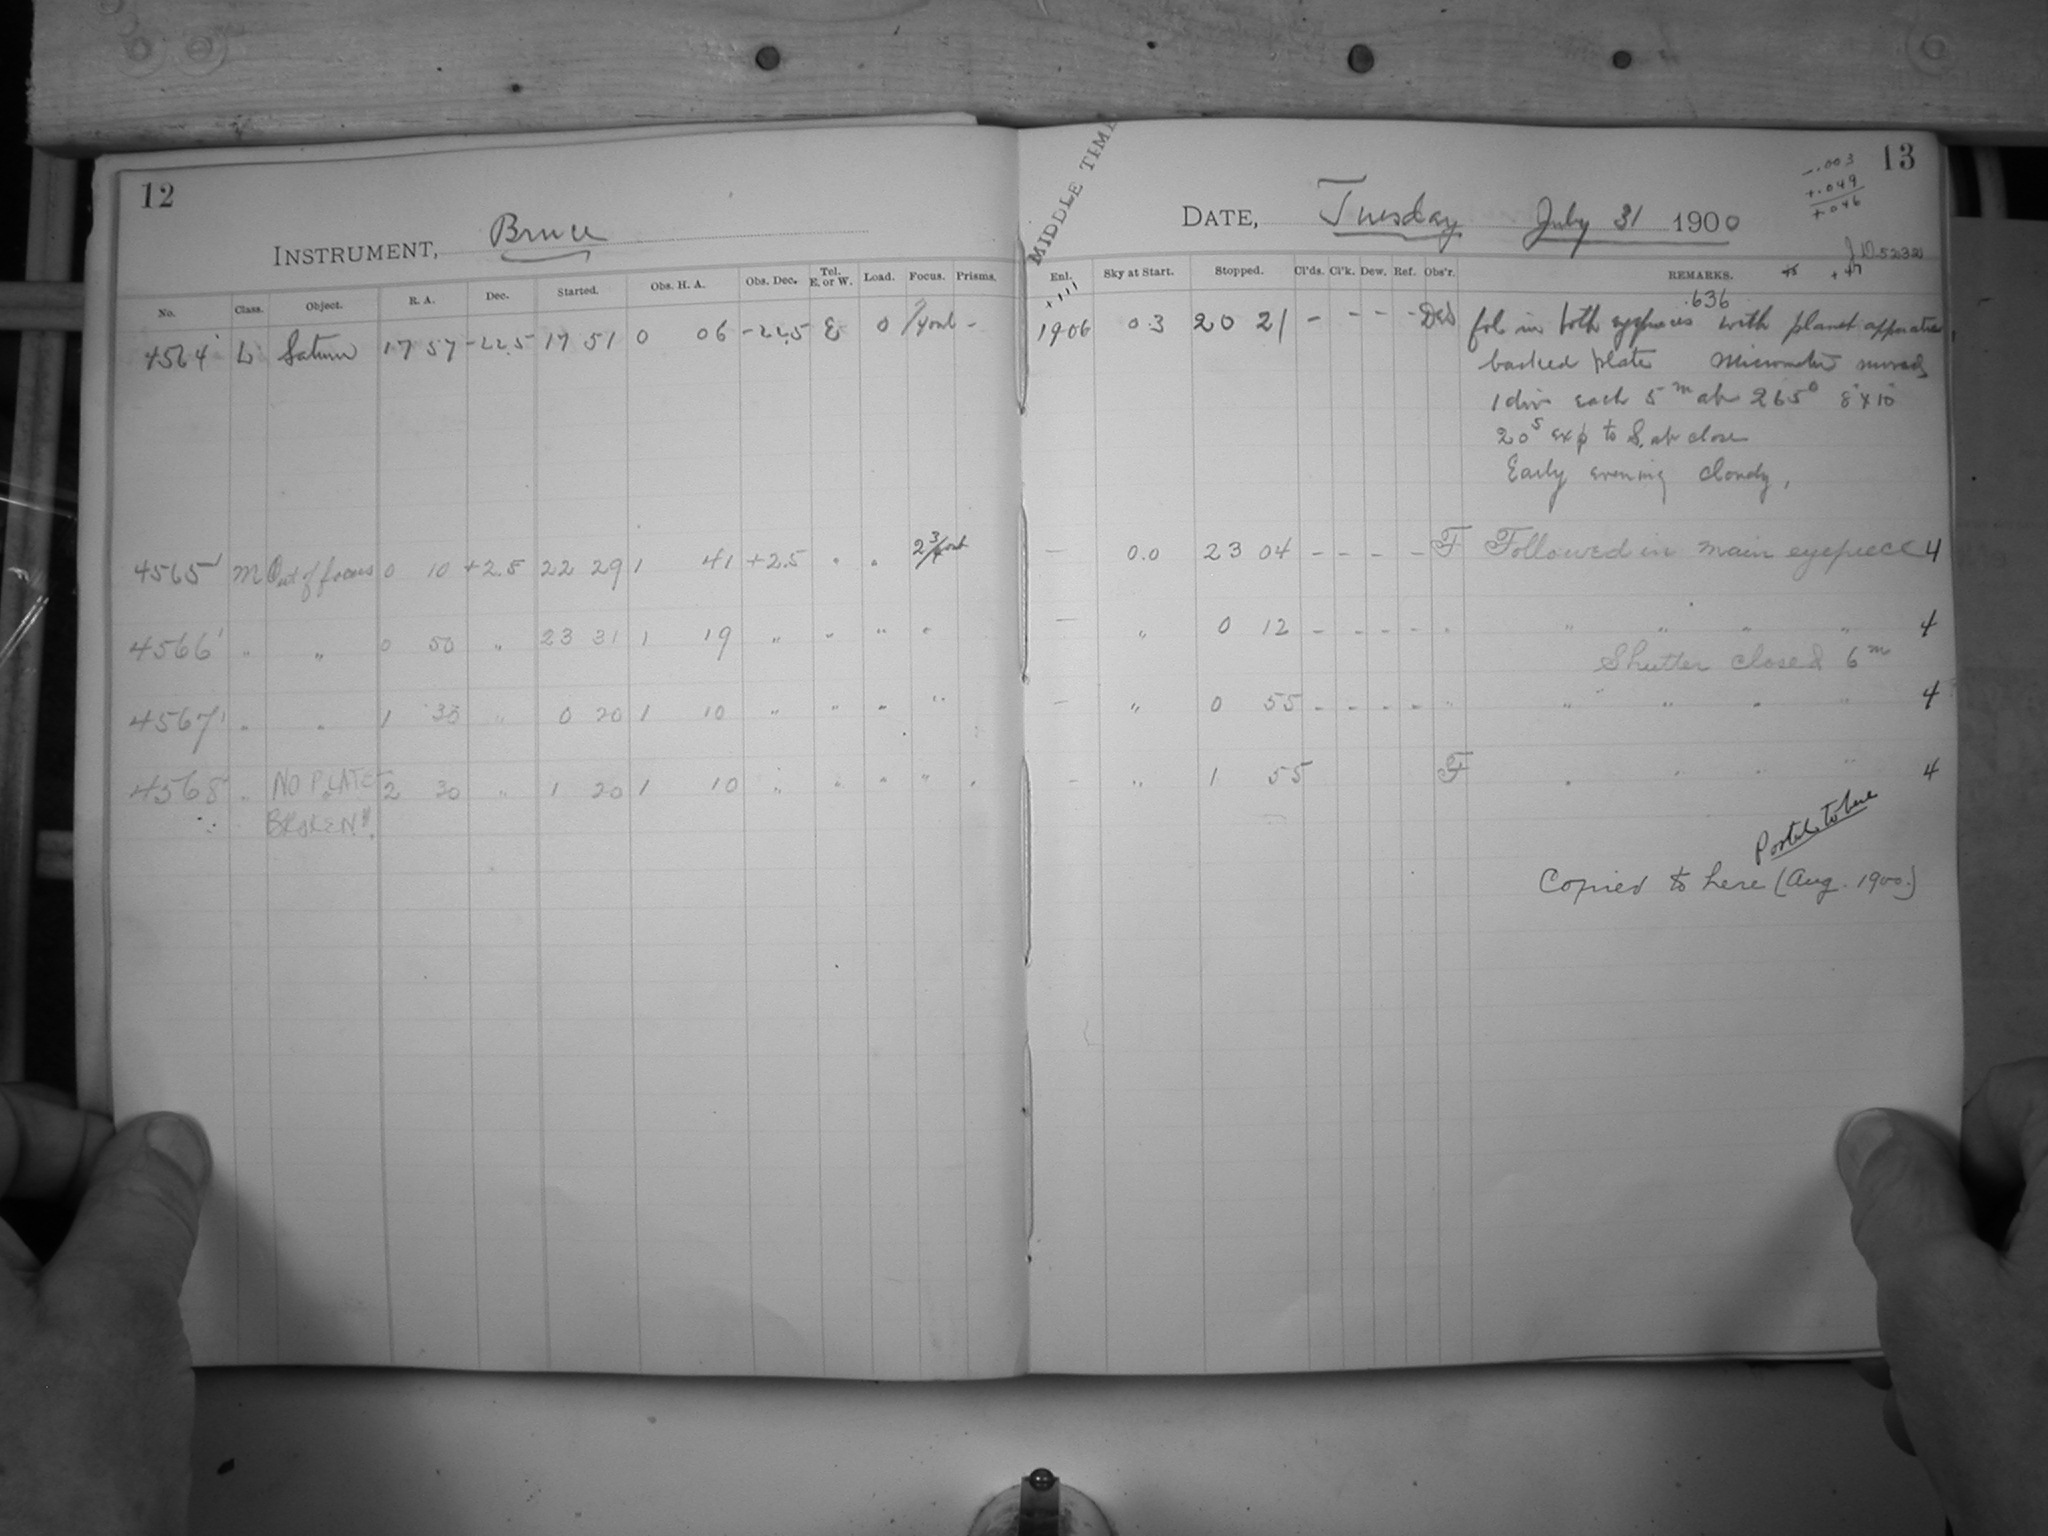 12
INSTRUMENT, Bruce
No. Class. Object. R. A. Dec. Started. Obs. H. A. Obs. Dec. Tel. E. or W. Load. Focus. Prisms.
4564 L Saturn 17 57 -22.5 17 51 0 06 -22.5 E 0 -
4565 M Out of focus 0 10 +2.5 22 29 1 41 +2.5 " " 2 3/4 out
4566 " " 0 50 " 23 31 1 19 " " " "
4567 " " 1 30 " 0 20 1 10 " " " "
4568 " NO PLATE 2 30 " 1 20 1 10 " " " "
BROKEN".
13
-.003
+.049
+.046
MIDDLE TIME
DATE, Tuesday July 31 1900
Enl. Sky at Start. Stopped. Cl'ds. Cl'k. Dew. Ref. Obs'r. REMARKS.
+47
.636
1906 0.3 20 21 - - - - fol in both eyepieces with planet apparatus
backed plate Micrometer moved
1 div each 5m at 265° 8 x 10
20s exp to S. at close
Early evening cloudy,
— 0.0 23 04 - - - - F Followed in main eyepiece 4
— " 0 12 - - - - " " " " " 4
Shutter closed 6m
— " 0 55 - - - - " " " " " 4
- " 1 55 F " " " " 4
Copied to here (Aug. 1900.)